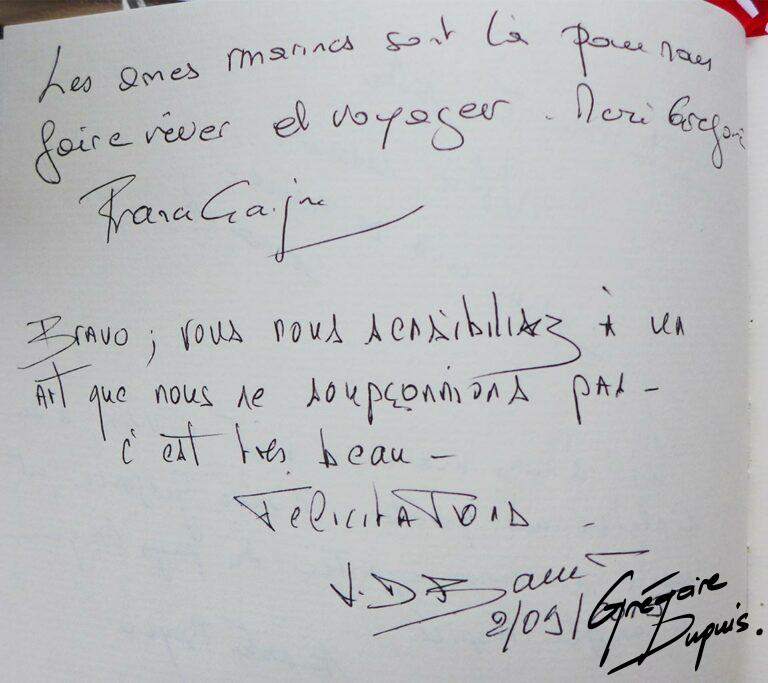 Les ames marines sont là pour nous
faire rêver et voyager. Merci Grégoire
BRAVO ; vous nous sensibilisez à un
ART que nous ne soupçonnions pas -
c'est très beau -
FéLicitATions -
J. D
2/09/
Grégoire
Dupuis.